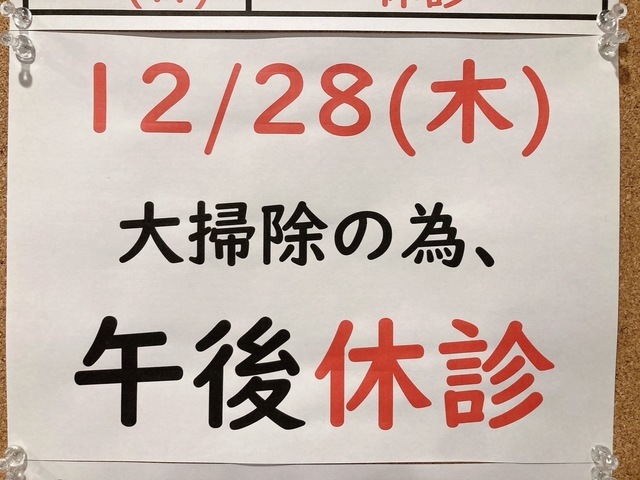 12/28(木)
大掃除の為、
午後休診